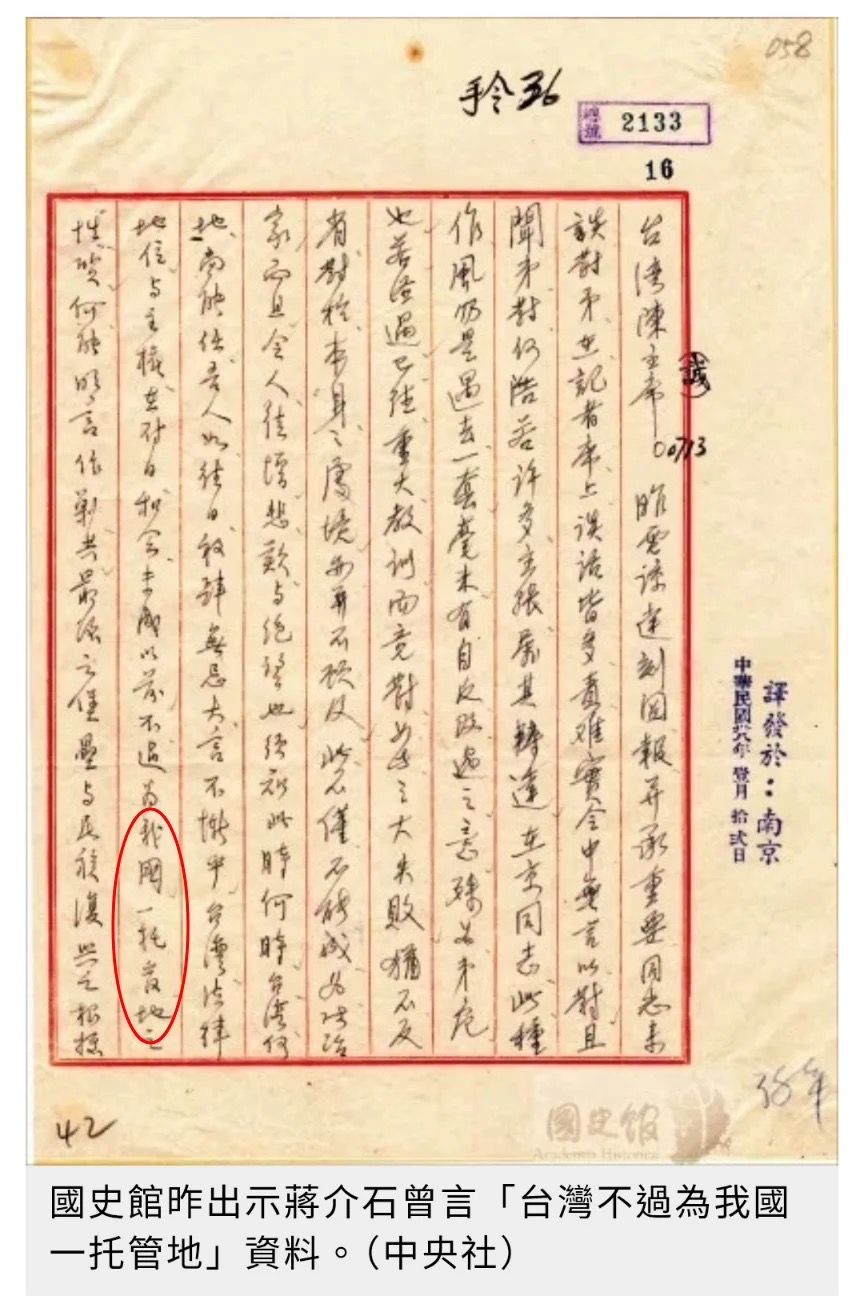 058
手令36
總號 2133
16
譯發於：南京
中華民國卅八年 壹月 拾弍日
台湾陳主席(誠) 00713 昨電諒達刻閱報并承重要同志來
談對弟在記者席上談話皆多責难實令中無言以對且
聞弟對何浩若許多主張屬其轉達在京同志此種
作風仍是過去一套毫未有自反改過之意殊為弟危
也若經過已往重大教训而竟對如此之大失敗猶不反
省對於本身之處境亦再不顧及此不僅不能成為政治
家而且令人徒增悲歎與絕望也須知此時何時台湾何
地尚能任吾人如往日放肆無忌大言不慚乎台灣法律
地位与主權在对日和会未成以前不過為我國一托管地之
性质何能明言作剿共最後之堡壘与民族復興之根據
38年
42
國史館
Academia Historica
國史館昨出示蔣介石曾言「台灣不過為我國
一托管地」資料。（中央社）